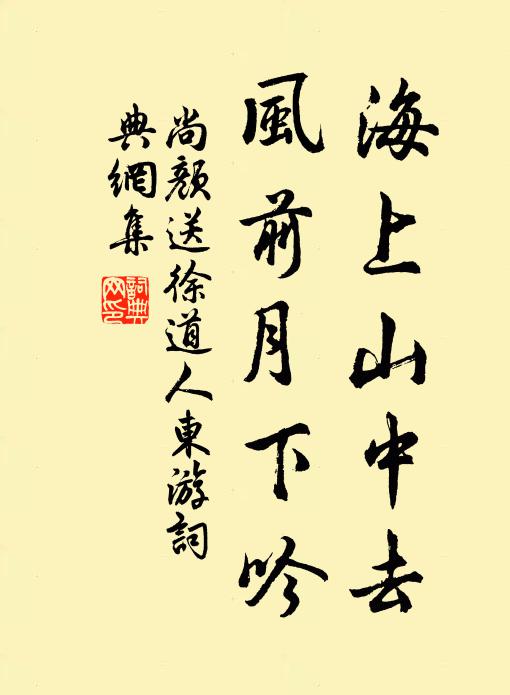 海上山中去
風前月下吟
尚顏送徐道人東游詞
典網集
詞典網印